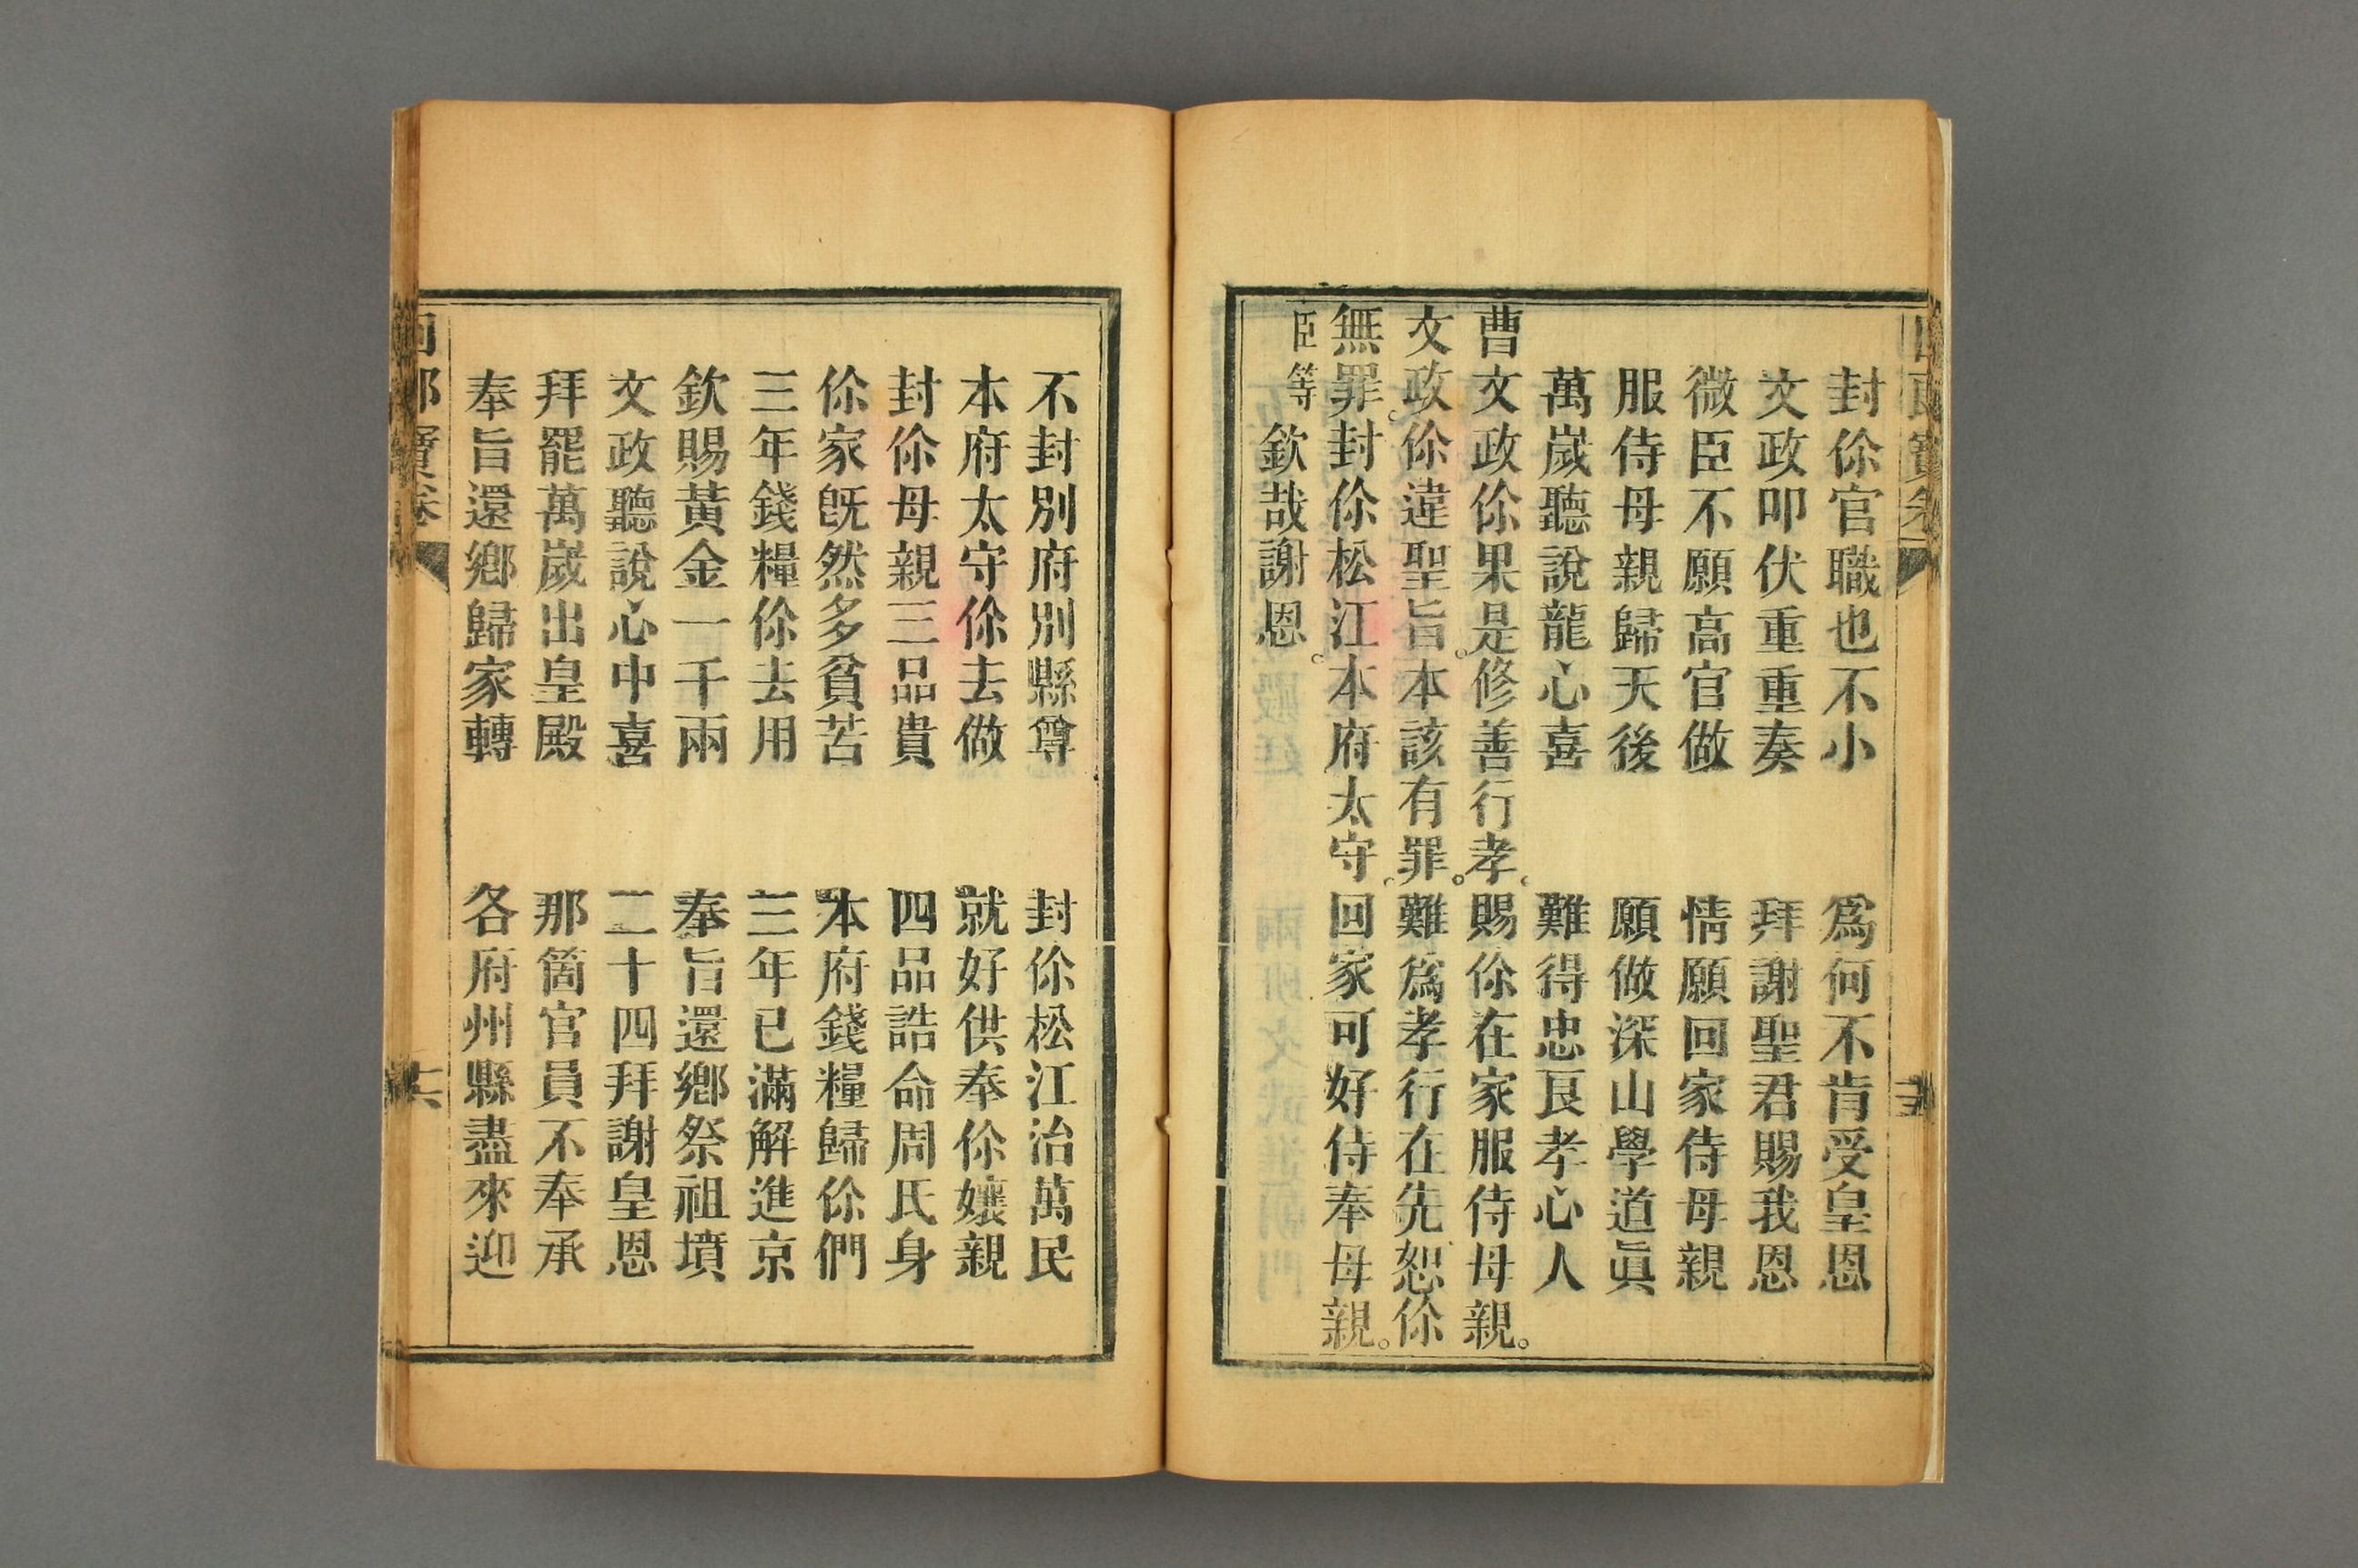 封你官職也不小 為何不肯受皇恩
文政叩伏重重奏 拜謝聖君賜我恩
微臣不願高官做 情願回家侍母親
服侍母親歸天後 願做深山學道眞
萬嵗聽說龍心喜 難得忠良孝心人
曹文政你果是修善行孝。賜你在家服侍母親。
文政你違聖旨。本該有罪。難爲孝行在先恕你
無罪。封你松江本府太守。回家可好侍奉母親。
臣等欽哉謝恩。
不封別府別縣尊 封你松江治萬民
本府太守你去做 就好供奉你孃親
封你母親三品貴 四品誥命周氏身
你家旣然多貧苦 本府錢糧歸你們
三年錢糧你去用 三年已滿解進京
欽賜黃金一千兩 奉旨還鄉祭祖墳
文政聽說心中喜 二十四拜謝皇恩
拜罷萬嵗出皇殿 那箇官員不奉承
奉旨還鄉歸家轉 各府州縣盡來迎
寶卷